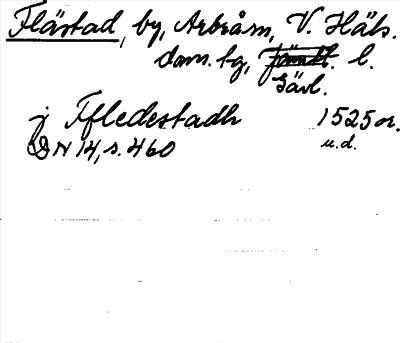 Flästad, by, Arbrå sn, V. Häls.
doms. bg, Jämtl. l.
Gävl.
j Fledestadh 1525 or.
DN 14, s. 460 u.d.